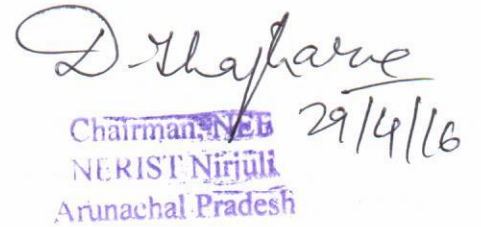 29/4/16
Chairman, NEE
NERIST Nirjuli
Arunachal Pradesh